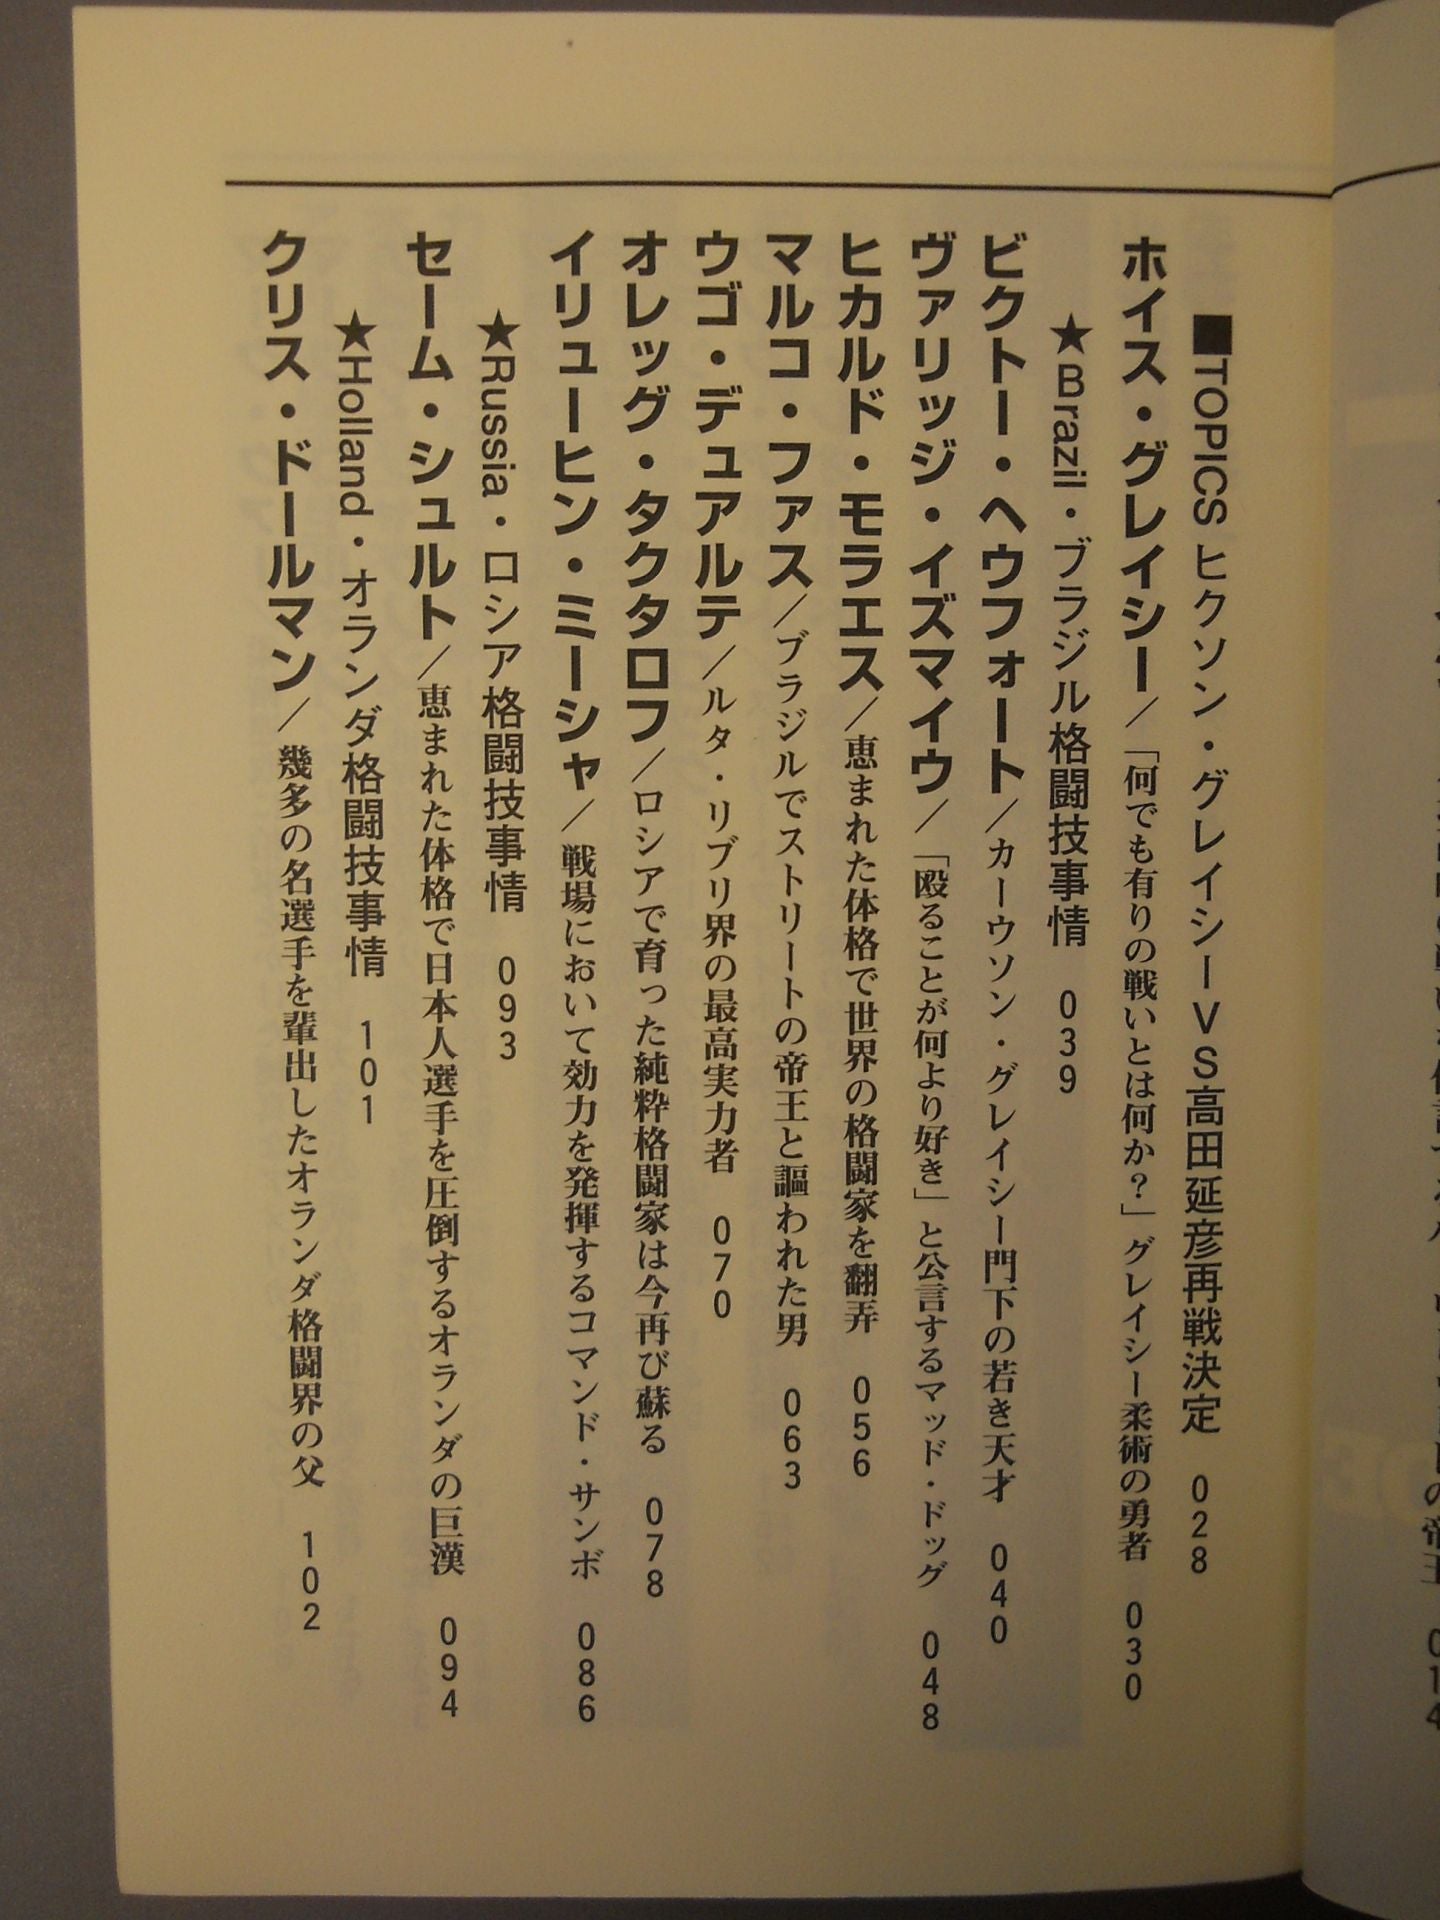 ■TOPICS ヒクソン・グレイシーVS高田延彦再戦決定 028
ホイス・グレイシー/「何でも有りの戦いとは何か?」グレイシー柔術の勇者 030
★Brazil・ブラジル格闘技事情 039
ビクトー・ヘウフォート/カーウソン・グレイシー門下の若き天才 040
ヴァリッジ・イズマイウ/「殴ることが何より好き」と公言するマッド・ドッグ 048
ヒカルド・モラエス/恵まれた体格で世界の格闘家を翻弄 056
マルコ・ファス/ブラジルでストリートの帝王と謳われた男 063
ウゴ・デュアルテ/ルタ・リブリ界の最高実力者 070
オレッグ・タクタロフ/ロシアで育った純粋格闘家は今再び蘇る 078
イリューヒン・ミーシャ/戦場において効力を発揮するコマンド・サンボ 086
★Russia・ロシア格闘技事情 093
セーム・シュルト/恵まれた体格で日本人選手を圧倒するオランダの巨漢 094
★Holland・オランダ格闘技事情 101
クリス・ドールマン/幾多の名選手を輩出したオランダ格闘界の父 102